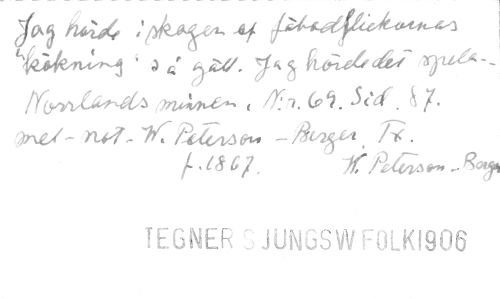 Jag hörde i skogen af fäbodflickornas
"kökning" så gällt. Jag hörde det spela -
Norrlands minnen. N:r. 69. Sid. 87.
met - not - W. Peterson - Berger. Tx.
f. 1867. W. Peterson - Berger
TEGNER S JUNGSW FOLK1906